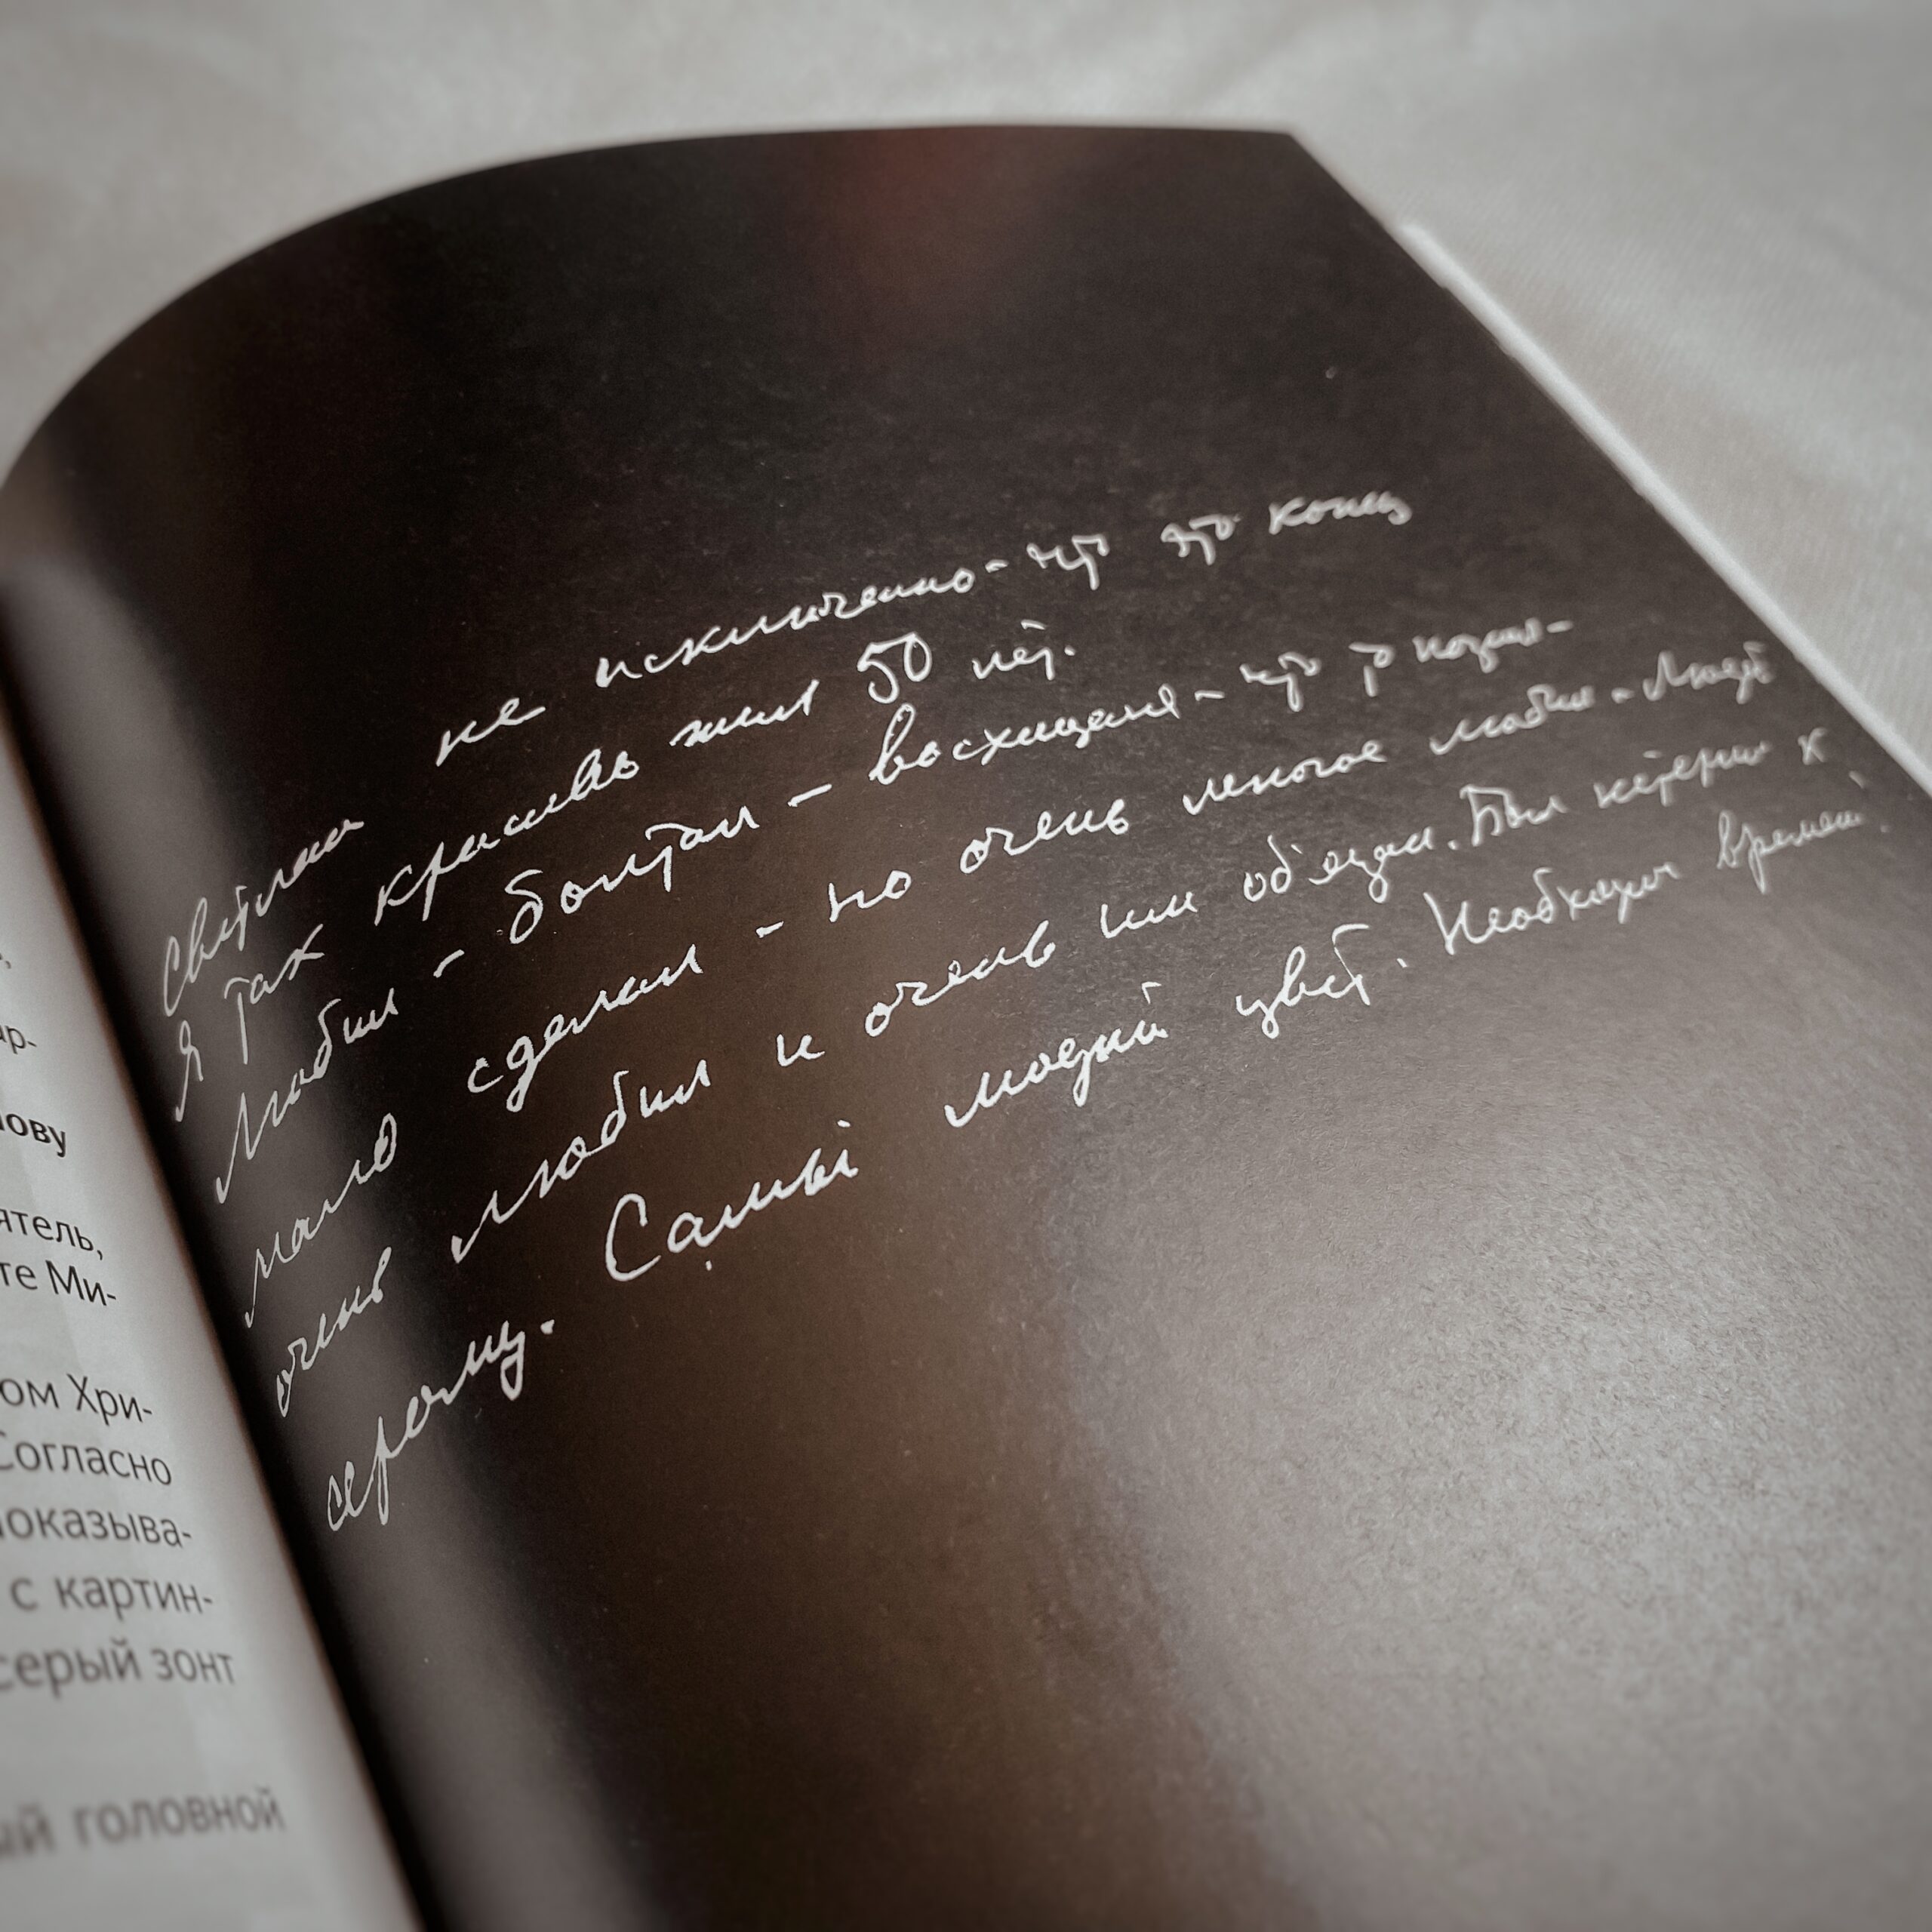 р-
лову
ятель,
те Ми-
ом Хри-
Согласно
показыва-
с картин-
серый зонт
ый головной
Светлана не исключено - что это конец
Я так красиво жил 50 лет.
Любил - болтал - восхищался - что то
мало сделал - но очень многое любил - Людей
очень любил и очень им обязан. Был нетерпим к
серому. Самый модный цвет. Необходим времени.